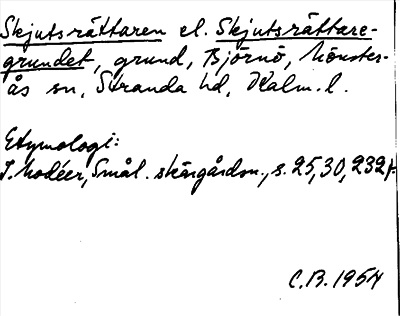 Skjutsrättaren el. Skjutsrättare-
grundet, grund, Björnö, Mönster-
ås sn, Stranda hd, Kalm. l.
Etymologi:
I. Modéer, Smål. skärgårdsn., s. 25, 30, 232 f.
C.B. 1954